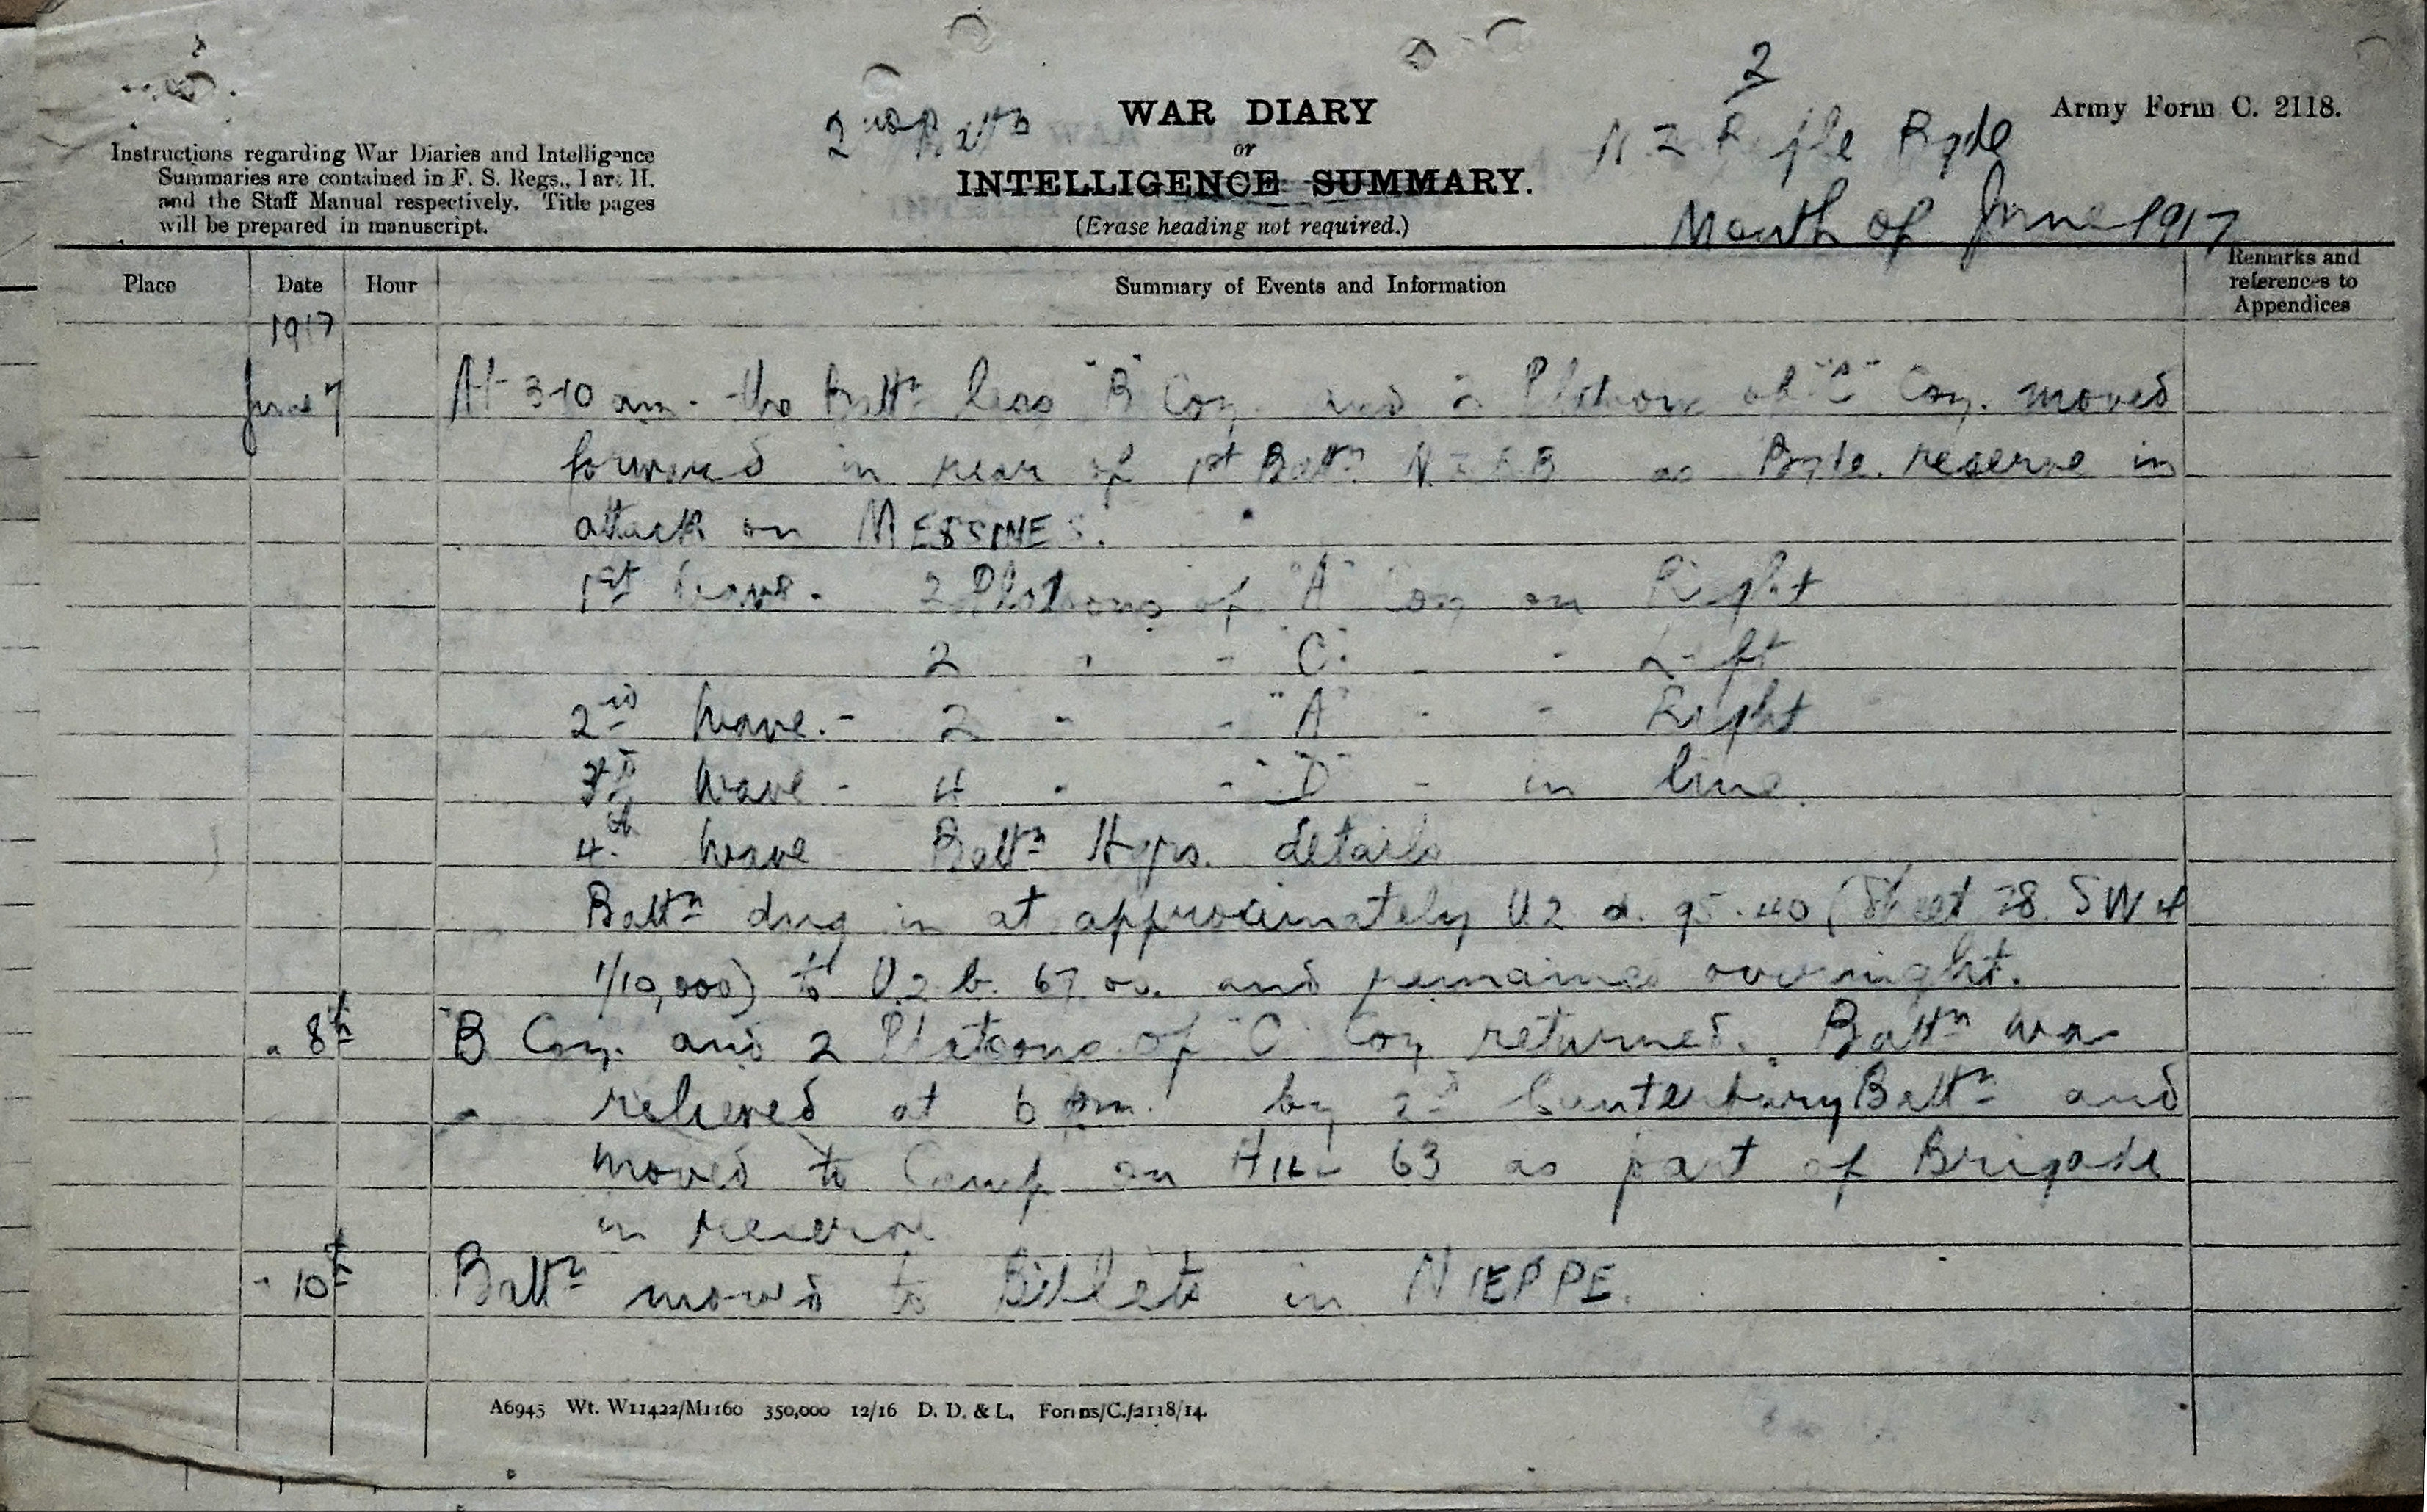 2
2nd Battn
WAR DIARY
Army Form C. 2118.
N Z Rifle Bgde
or
Instructions regarding War Diaries and Intelligence
Summaries are contained in F. S. Regs., Part II.
and the Staff Manual respectively. Title pages
will be prepared in manuscript.
INTELLIGENCE SUMMARY.
(Erase heading not required.)
Month of June 1917
Place Date Hour Summary of Events and Information Remarks and references to Appendices
1917
June 7 At 3-10 am. the Battn less "B" Coy. and 2 Platoons of "C" Coy. moved
forward in rear of 1st Battn N.Z.R.B as Bgde. reserve in
attack on MESSINES.
1st wave. 2 Platoons of "A" Coy on Right
2 " " "C" " " Left
2nd wave.- 2 " " "A" " " Right
3rd wave - 4 " " "D" " in line.
4th wave Battn Hqrs. details
Battn dug in at approximately U2 d. 95.40 (Sheet 28 SW 4
1/10,000) to U.2 b. 67.00. and remained overnight.
" 8th "B Coy. and 2 Platoons of "C" Coy returned. Battn was
relieved at 6 pm. by 2nd Canterbury Battn and
moved to Camp on HILL 63 as part of Brigade
in reserve
" 10th Battn moved to Billets in NIEPPE.
A6945 Wt. W11422/M1160 350,000 12/16 D. D. & L. Forms/C./2118/14.